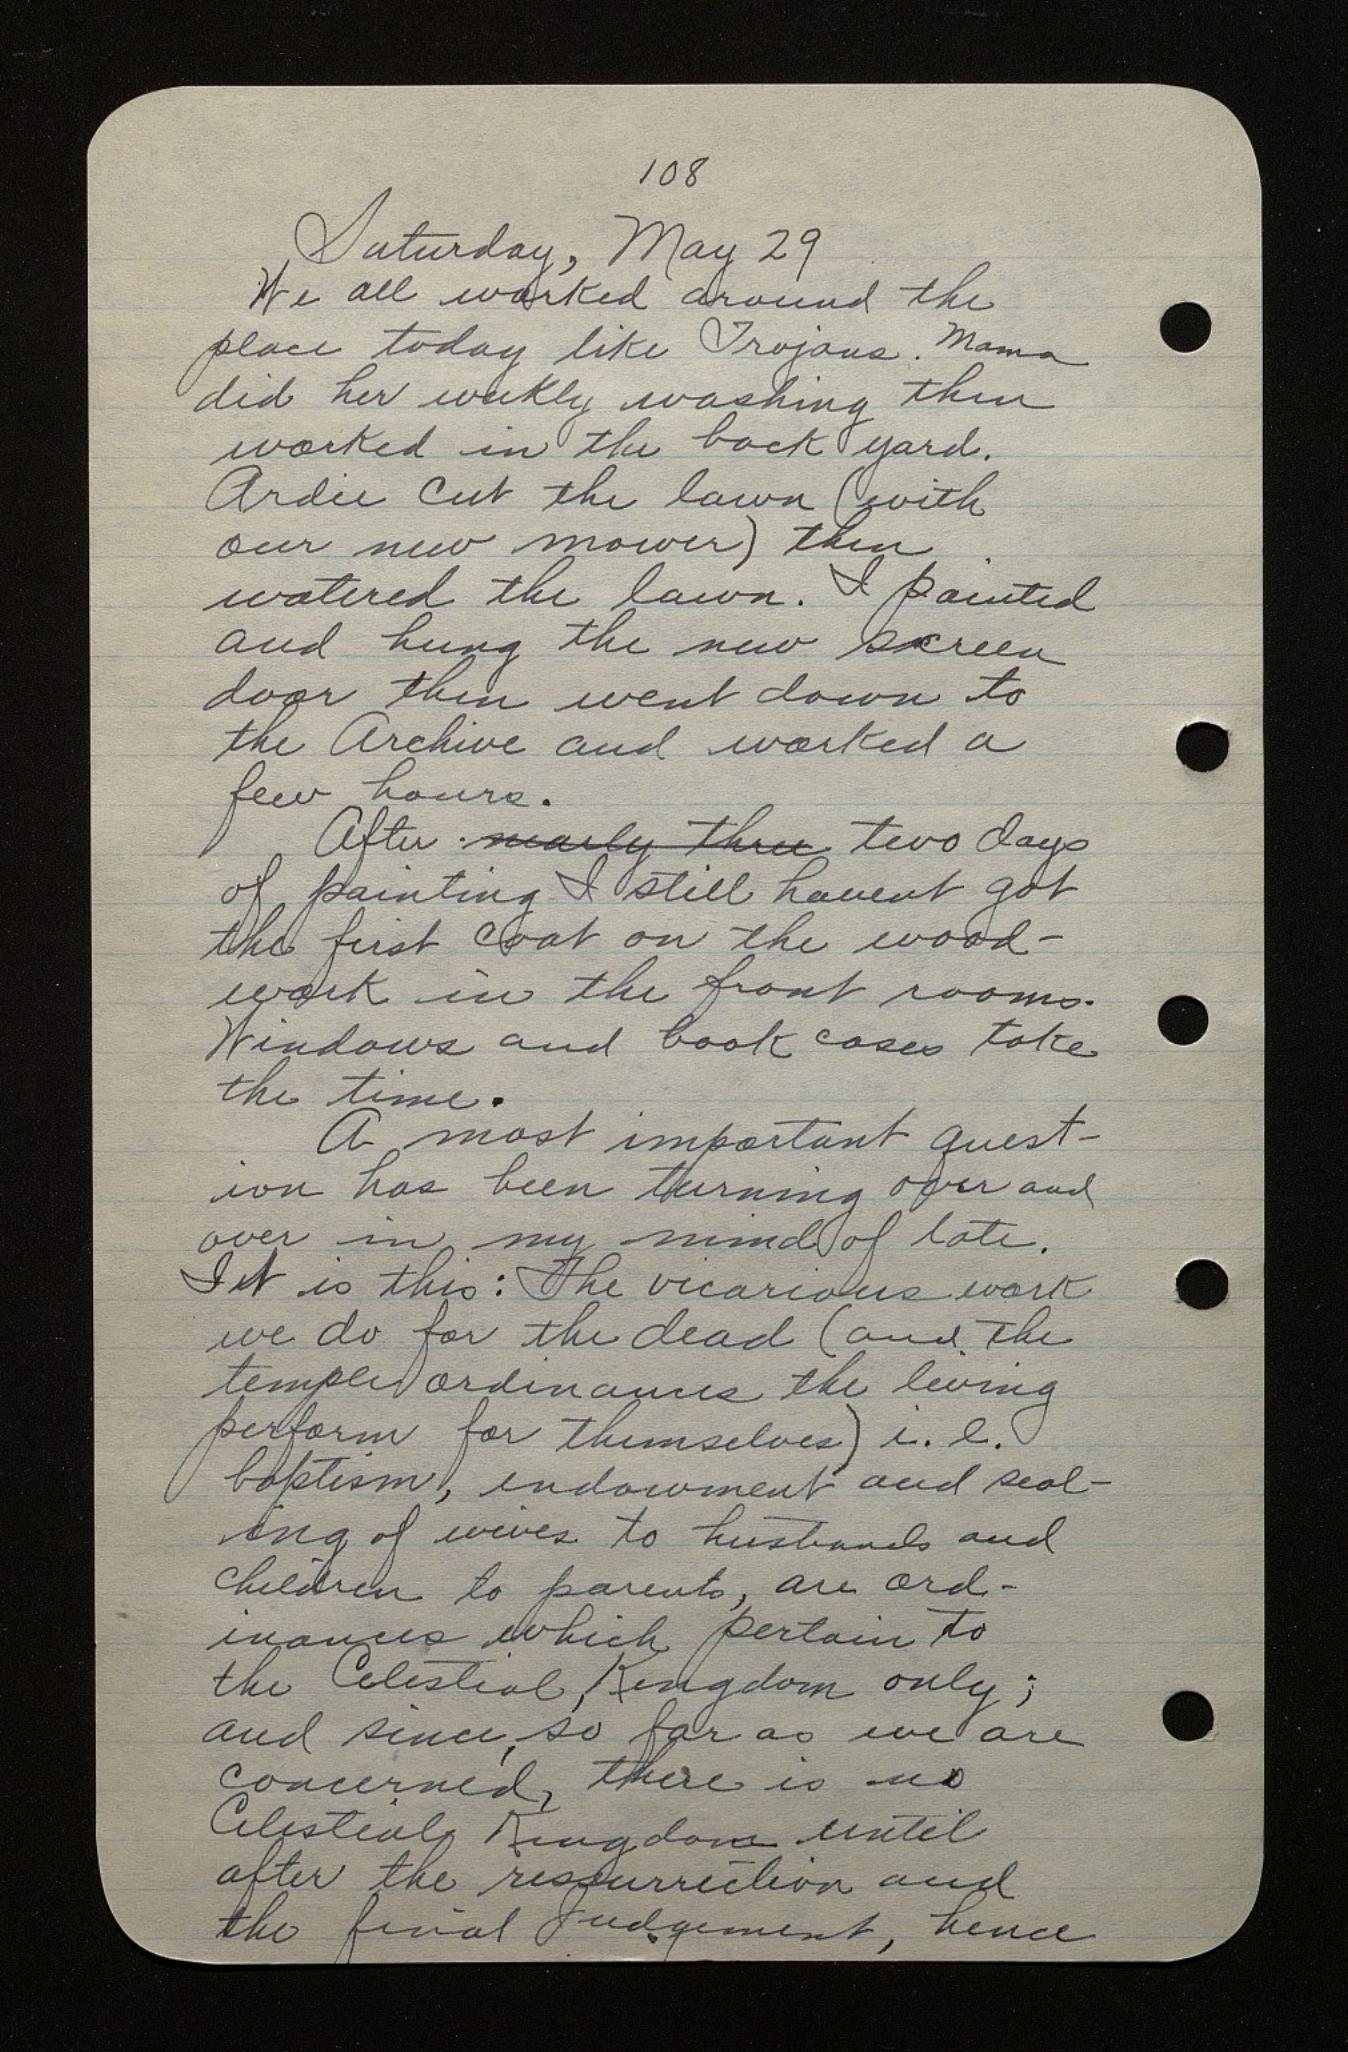 108
Saturday, May 29
We all worked around the
place today like Trojans. Mama
did her weekly washing then
worked in the back yard.
Ardie cut the lawn (with
our new mower) then
watered the lawn. I painted
and hung the new screen
door then went down to
the Archive and worked a
few hours.
After nearly three two days
of painting I still havent got
the first coat on the wood-
work in the front rooms.
Windows and book cases take
the time.
A most important quest-
ion has been turning over and
over in my mind of late.
It is this: The vicarious work
we do for the dead (and the
temple ordinances the living
perform for themselves) i. e.
baptism, endowment and seal-
ing of wives to husbands and
children to parents, are ord-
inances which pertain to
the Celestial Kingdom only;
and since, so far as we are
concerned, there is no
Celestial Kingdom until
after the ressurrection and
the final Judgement, hence